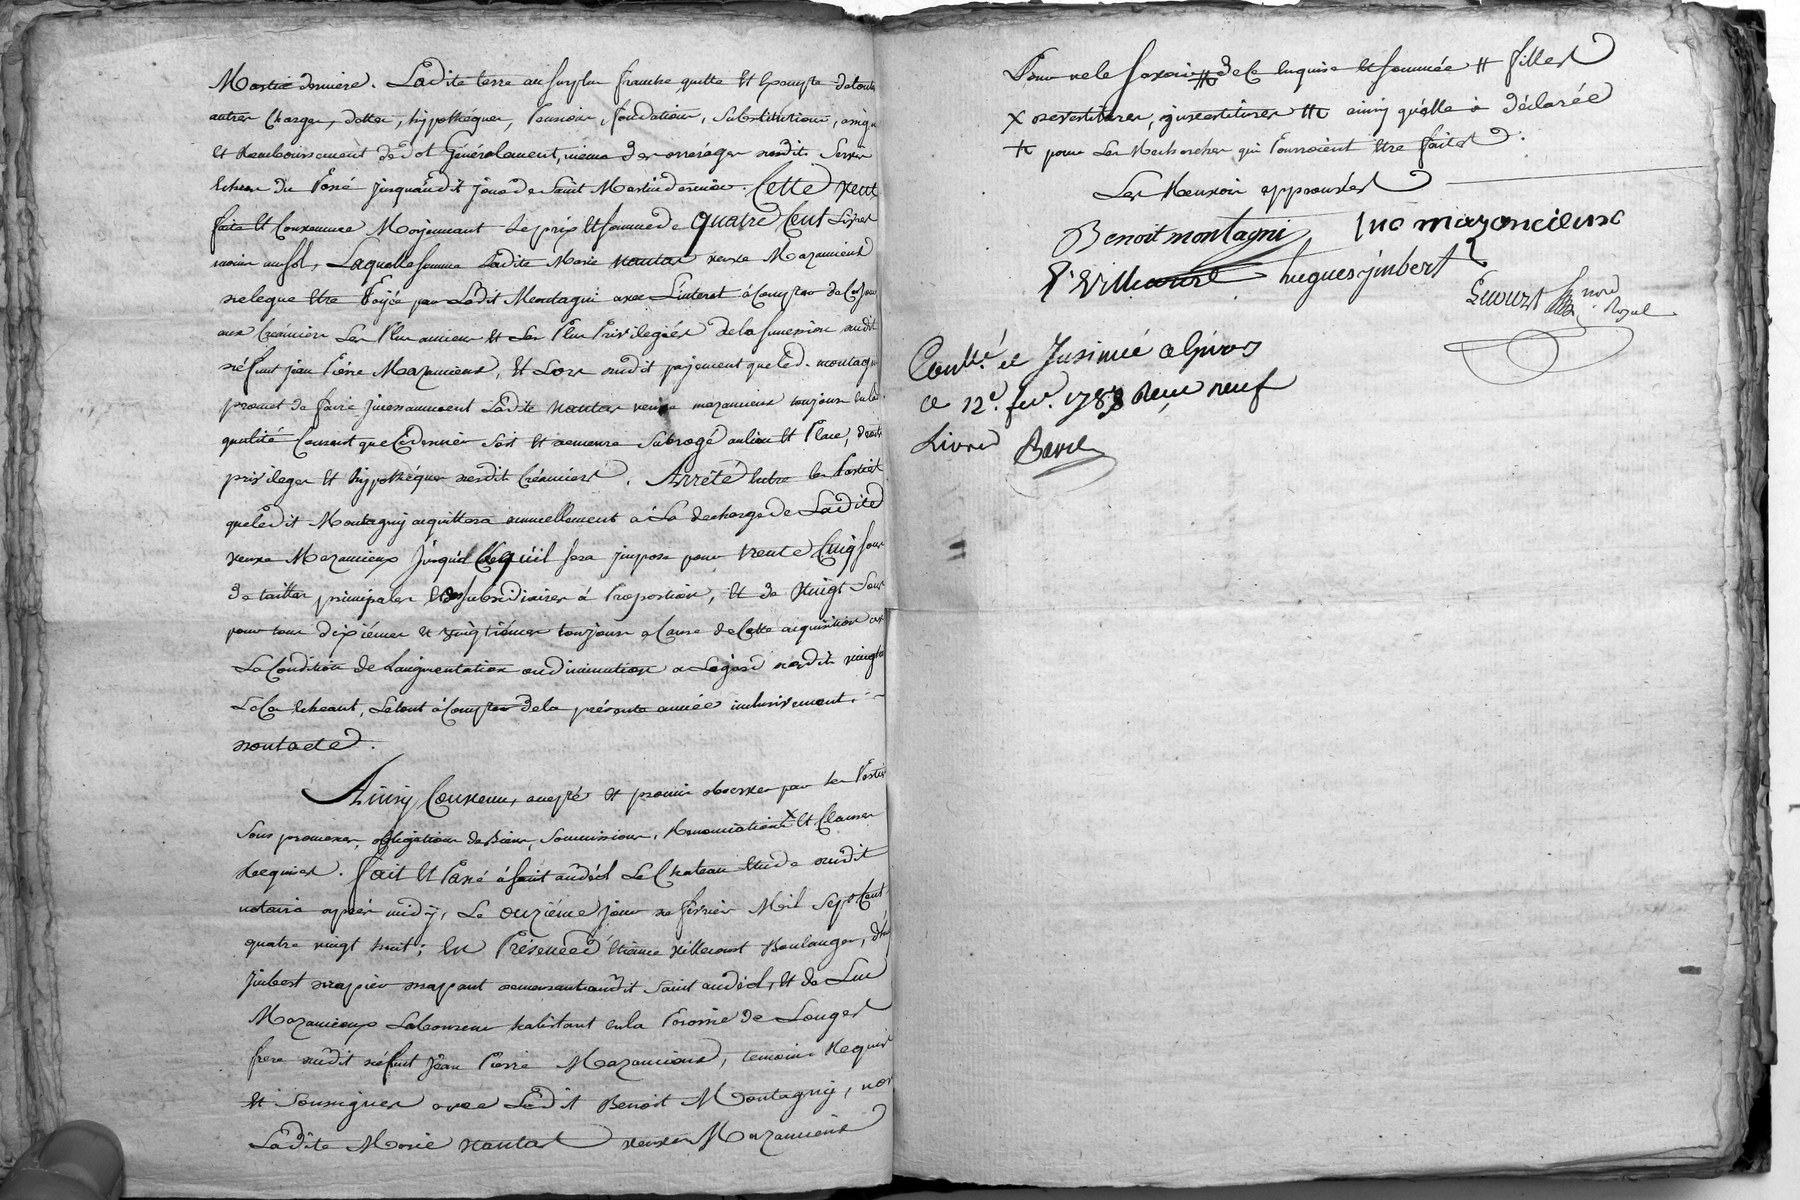 Martin derniere. Ladite terre au surplus franche quitte et exempte de toutes
autres charges, dettes, hypothéques, Pension, fondation, Substitution, 
et Remboursement de dot Généralement, même des arrerages desdits Servis
echus du Passé jusqu'audit jour de Saint Martin dernier. Cette vente
faite et Convenue Moyennant le prix et somme de quatre Cent Livres
 Laquelle somme Ladite Marie nantas veuve Mazancieux
delegue Etre Payée par Ledit Montagni avec L'interet à Compter de ce jour
aux Créanciers Les Plus anciens et Les Plus Privilegiés de la succession audit
défunt jean Pierre Mazancieux, Et Lors dudit payement que led. montagni
promet de faire incessamment Ladite nantas veuve mazancieux toujours en lad.
qualité Consent que ce dernier soit et demeure subrogé au lieu et Place, droits
privileges et hypothéques desdit Créanciers. Arrêté Entre les Parties
que ledit Montagny acquittera annuellement à La decharge de Ladite
veuve Mazancieux jusqu'à ce qu'il sera imposé pour trente Cinq sous
de tailles principales et des subsidiaires à Proportion, et de vingt Sous
pour tous dixiémes et vingtiémes toujours a Cause de Cette acquisition sous
La Condition de L'augmentation ou diminution a L'égard desdits vingt.
Le Cas Echeant, Le tout à Compter de la présente année inclusivement.
dont acte.
Ainsy Convenu, accepté et promis observer par les Parties
Sous promesses, obligations de Biens, Soumissions, Renonciations X et Clauses
Requises. fait et Passé à saint andéol Le Chateau Etude dudit
notaire après midÿ, Le onziéme jour de fevrier Mil Sept Cent
quatre vingt huit; En Présence d'Etienne villecourt Boulanger, d'hug.
jmbert drapier drapant demeurants audit Saint andéol, et de Luc
Mazancieux Laboureur habitant en la Paroisse de Longes
frere dudit défunt Jean Pierre Mazancieux, temoins Requis
et Soussignés avec Ledit Benoit Montagny, non
Ladite Marie nantas veuve Mazancieux
Pour ne le savoir # de ce Enquise et sommée # filles
X devestitures, investitures # ainsy qu'elle a déclarée
 pour Les Recherches qui Pourroient Etre faites.
Les Renvois approuvés
Benoit montagni Luc mazancieux
E Villecourt hugues jmbert
 nore. Royal
Conllé. et Jnsinué a Givors
ce 12e. fevr. 1788 Reçu neuf
Livres